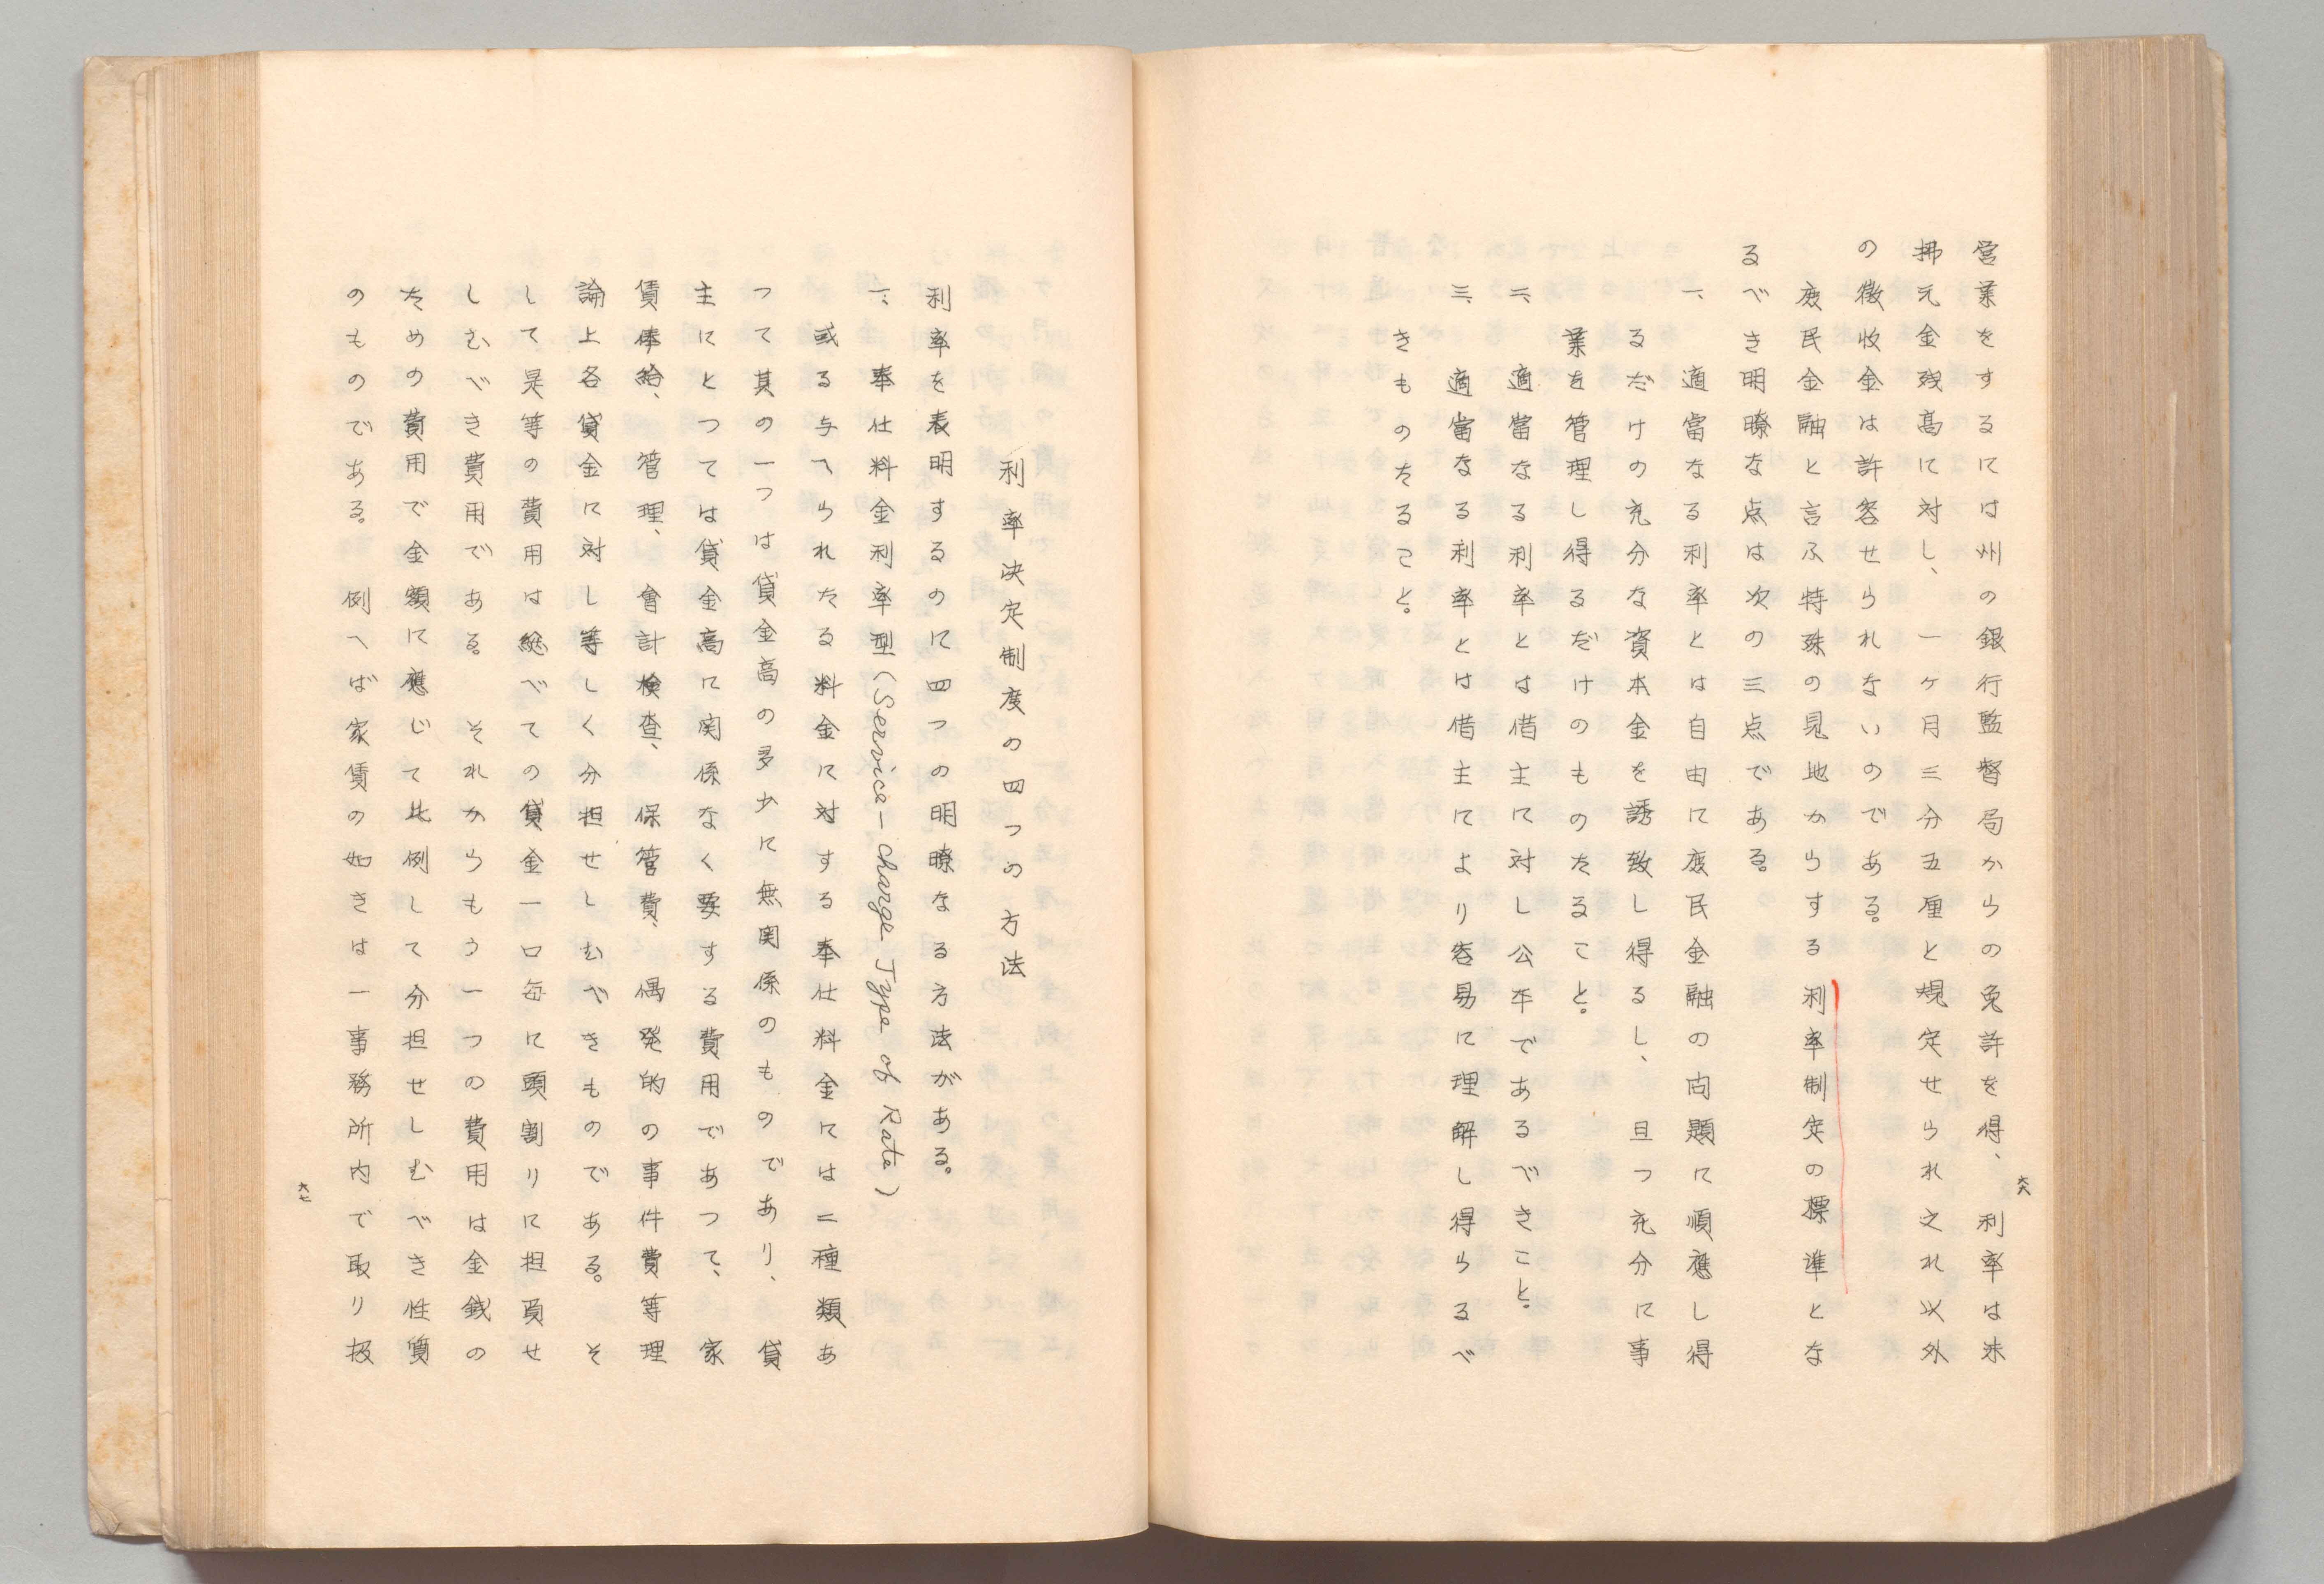 六六
営業をするには州の銀行監督局からの免許を得、利率は未
拂元金残高に対し、一ヶ月三分五厘と規定せられ之れ以外
の徴收金は許容せられないのである。
庶民金融と言ふ特殊の見地からする利率制定の標準とな
るべき明瞭な点は次の三点である。
一、適當なる利率とは自由に庶民金融の問題に順應し得
るだけの充分な資本金を誘致し得るし、且つ充分に事
業を管理し得るだけのものたること。
二、適當なる利率とは借主に対し公平であるべきこと。
三、適當なる利率とは借主により容易に理解し得らるべ
きものたること。
利率決定制度の四つの方法
利率を表明するのに四つの明瞭なる方法がある。
一、奉仕料金利率型(Service-charge Type of Rate)
或る与へられたる料金に対する奉仕料金には二種類あ
つて其の一つは貸金高の多少に無関係のものであり、貸
主にとつては貸金高に関係なく要する費用であつて、家
賃俸給、管理、會計検査、保管費、偶発的の事件費等理
論上各貸金に対し等しく分担せしむべきものである。そ
して是等の費用は総べての貸金一口毎に頭割りに担負せ
しむべき費用である。それからもう一つの費用は金銭の
ための費用で金額に應じて比例して分担せしむべき性質
のものである。例へば家賃の如きは一事務所内で取り扱
六七